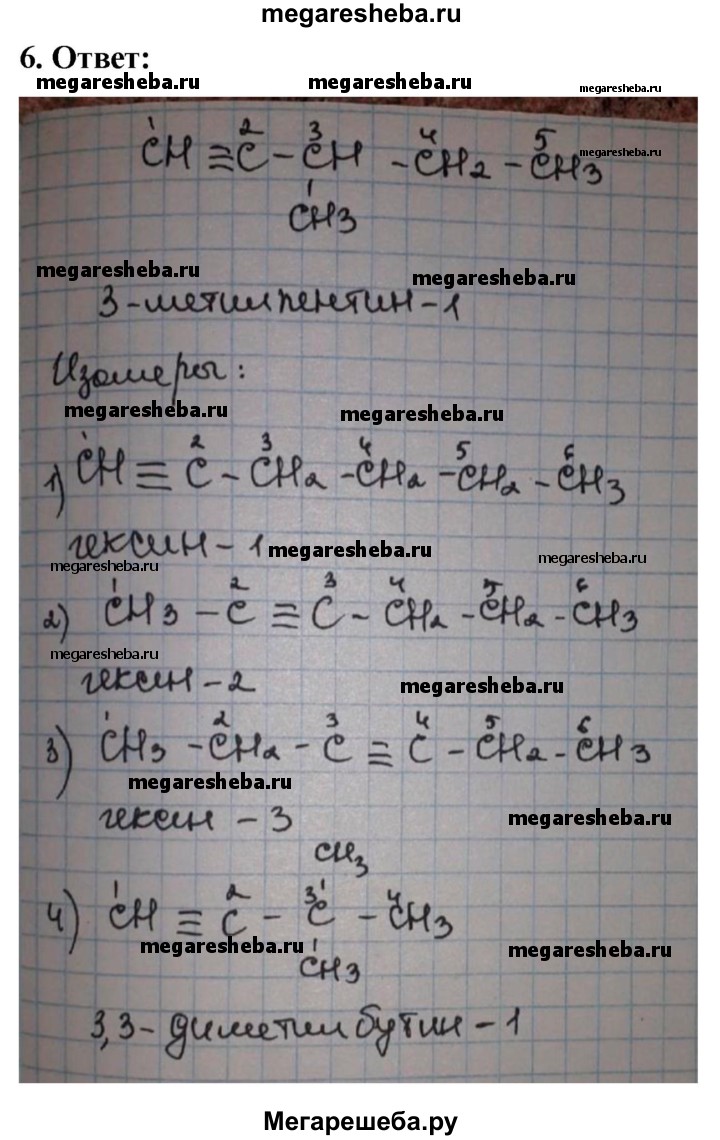 megaresheba.ru
6. Ответ:
megaresheba.ru megaresheba.ru megaresheba.ru
1 2 3 4 5
CH ≡ C – CH – CH2 – CH3 megaresheba.ru
CH3
megaresheba.ru megaresheba.ru
3-метилпентин-1
Изомеры:
megaresheba.ru megaresheba.ru
1 2 3 4 5 6
1) CH ≡ C – CH2 – CH2 – CH2 – CH3
гексин-1 megaresheba.ru megaresheba.ru
megaresheba.ru
1 2 3 4 5 6
2) CH3 – C ≡ C – CH2 – CH2 – CH3
megaresheba.ru
гексин-2 megaresheba.ru
1 2 3 4 5 6
3) CH3 – CH2 – C ≡ C – CH2 – CH3
megaresheba.ru
гексин-3 megaresheba.ru
CH3
1 2 3 4
4) CH ≡ C – C – CH3
megaresheba.ru megaresheba.ru
CH3
3,3-диметилбутин-1
Мегарешеба.ру